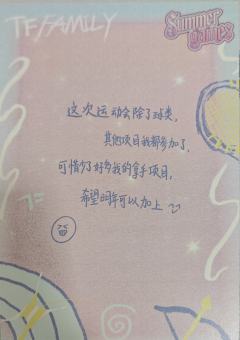 TF FAMILY
Summer games
这次运动会除了球类，
其他项目我都参加了，
可惜少了好多我的拿手项目，
希望明年可以加上
TF